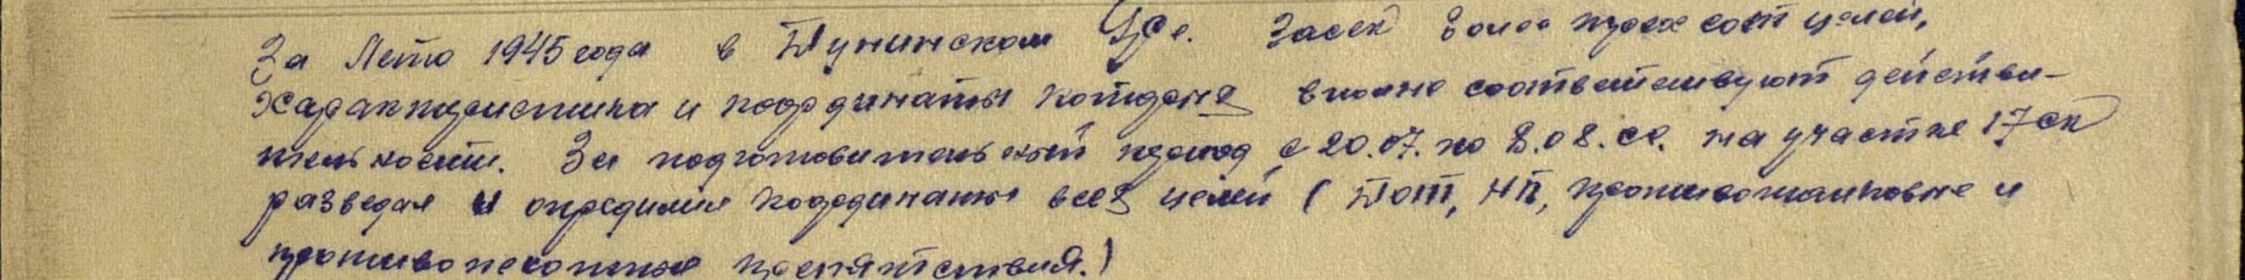 За Лето 1945 года в Дунинском Ур-е. Засек более трех сот целей,
Характеристика и координаты которых вполне соответствуют действи-
тельности. За подготовительный период с 20.07. по 8.08. с.г. на участке 17 ск
разведал и определил координаты всех целей (Дот, НП, противотанковые и
противопехотные препятствия.)